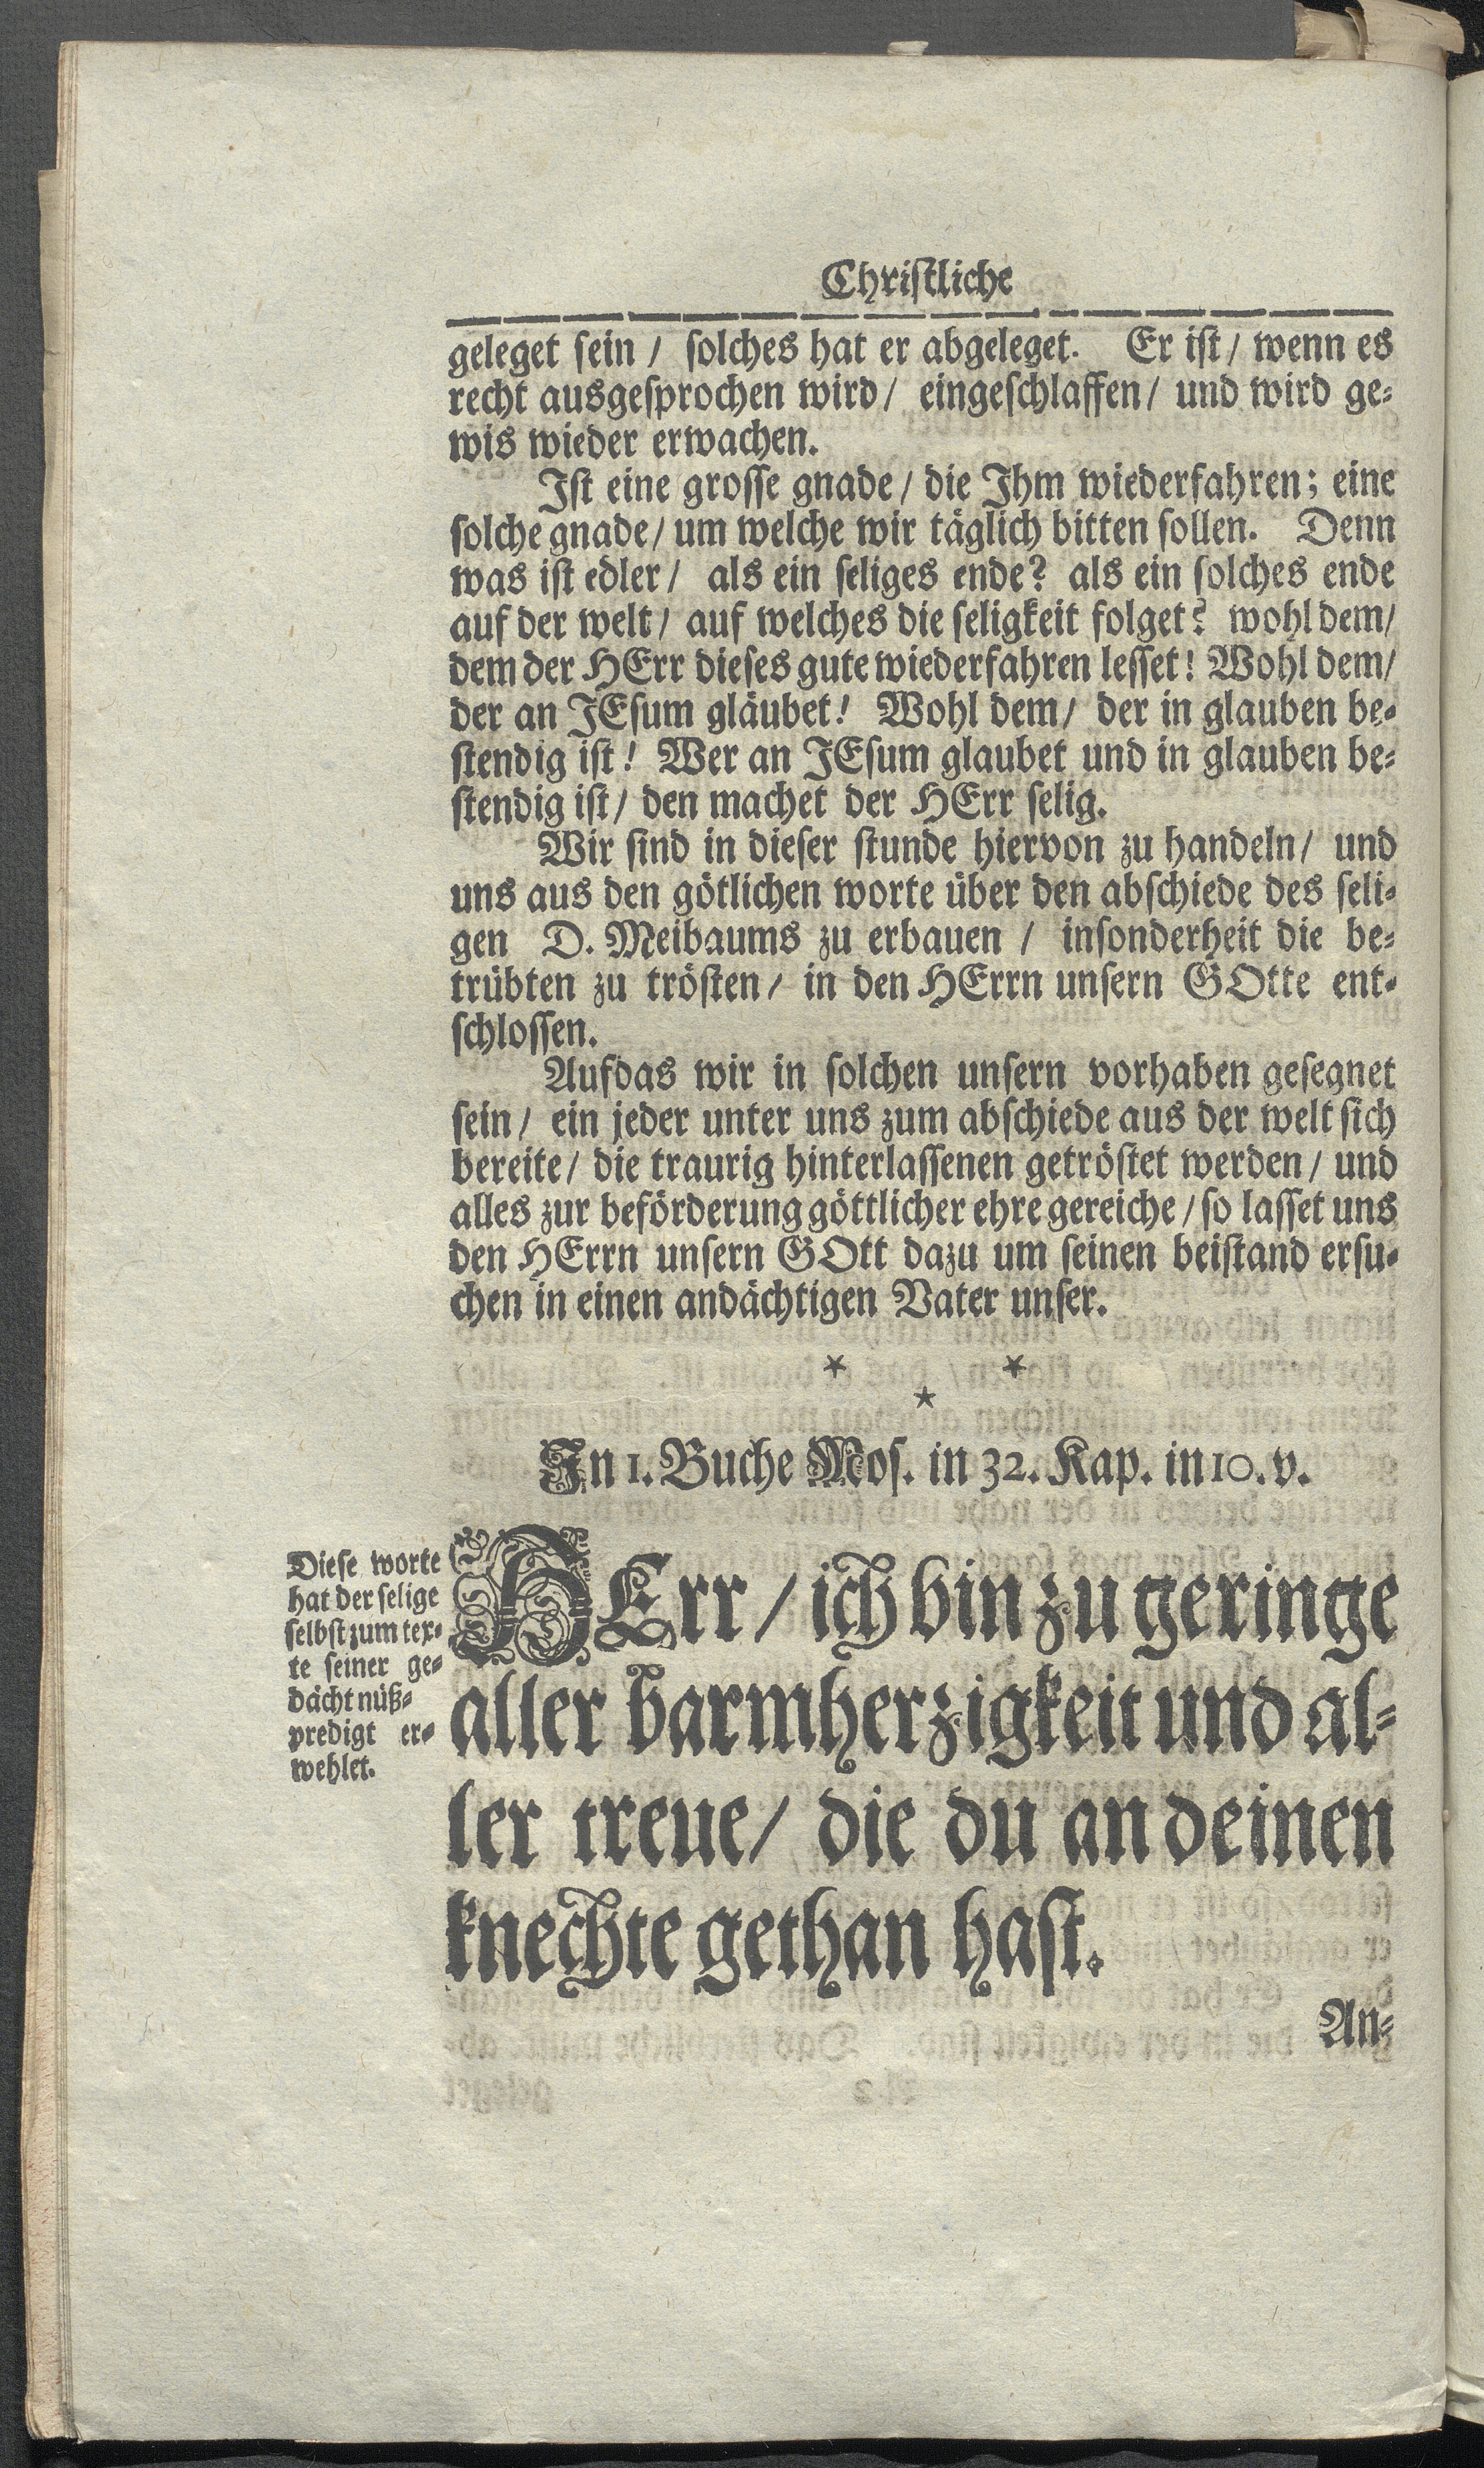 Christliche
geleget sein / solches hat er abgeleget. Er ist / wenn es
recht ausgesprochen wird / eingeschlaffen / und wird ge-
wis wieder erwachen.
Ist eine grosse gnade / die Ihm wiederfahren; eine
solche gnade / um welche wir täglich bitten sollen. Denn
was ist edler / als ein seliges ende? als ein solches ende
auf der welt / auf welches die seligkeit folget? wohl dem /
dem der HErr dieses gute wiederfahren lesset! Wohl dem /
der an JEsum gläubet! Wohl dem / der in glauben be-
stendig ist! Wer an JEsum glaubet und in glauben be-
stendig ist / den machet der HErr selig.
Wir sind in dieser stunde hiervon zu handeln / und
uns aus den götlichen worte über den abschiede des seli-
gen D. Meibaums zu erbauen / insonderheit die be-
trübten zu trösten / in den HErrn unsern GOtte ent-
schlossen.
Aufdas wir in solchen unsern vorhaben gesegnet
sein / ein jeder unter uns zum abschiede aus der welt sich
bereite / die traurig hinterlassenen getröstet werden / und
alles zur beförderung göttlicher ehre gereiche / so lasset uns
den HErrn unsern GOtt dazu um seinen beistand ersu-
chen in einen andächtigen Vater unser.
* *
*
In 1. Buche Mos. in 32. Kap. in 10. v.
Diese worte
hat der selige
selbst zum tex-
te seiner ge-
dächtnüß-
predigt er-
wehlet.
HErr / ich bin zu geringe
aller barmherzigkeit und al-
ler treue / die du an deinen
knechte gethan hast.
An-